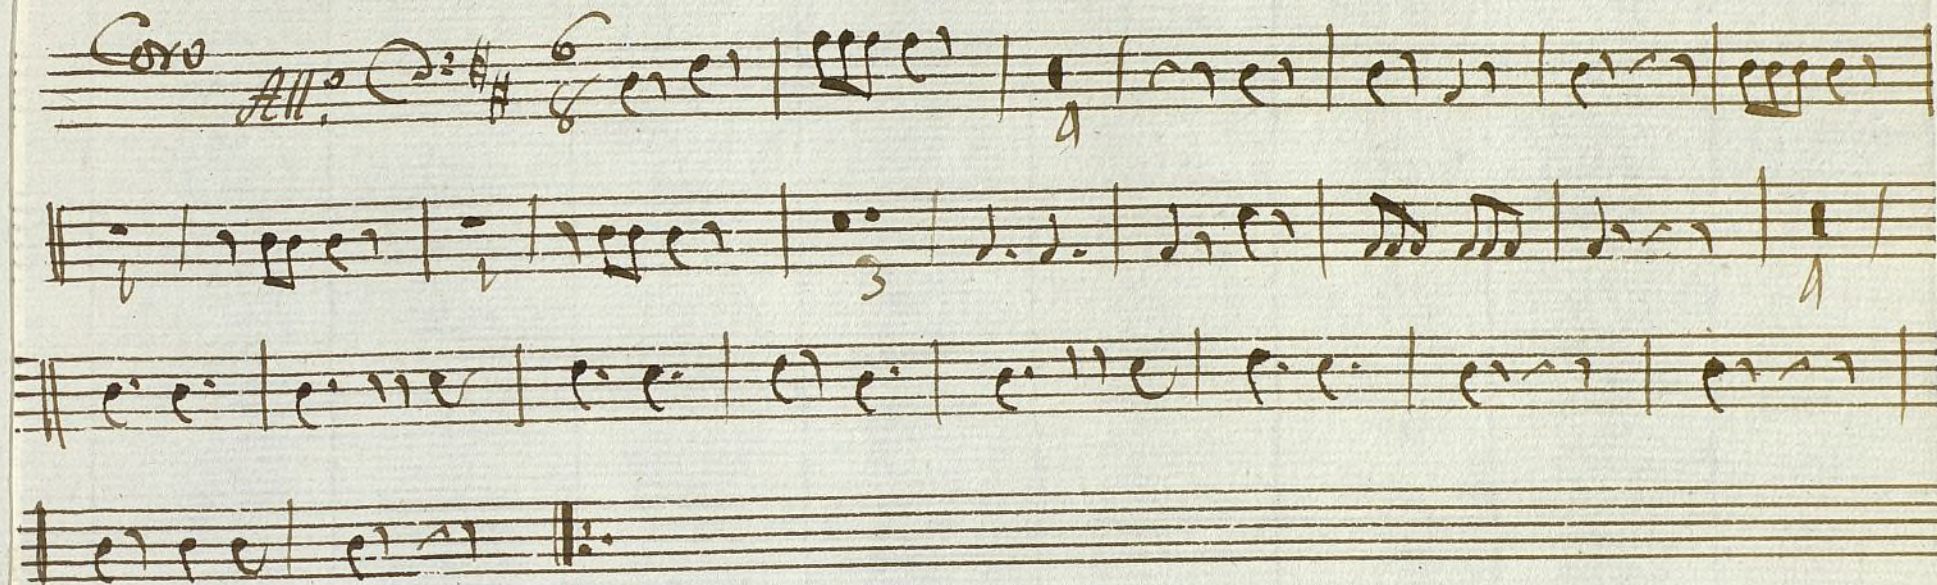 Coro All.o 6 8 4
1 1 3 4